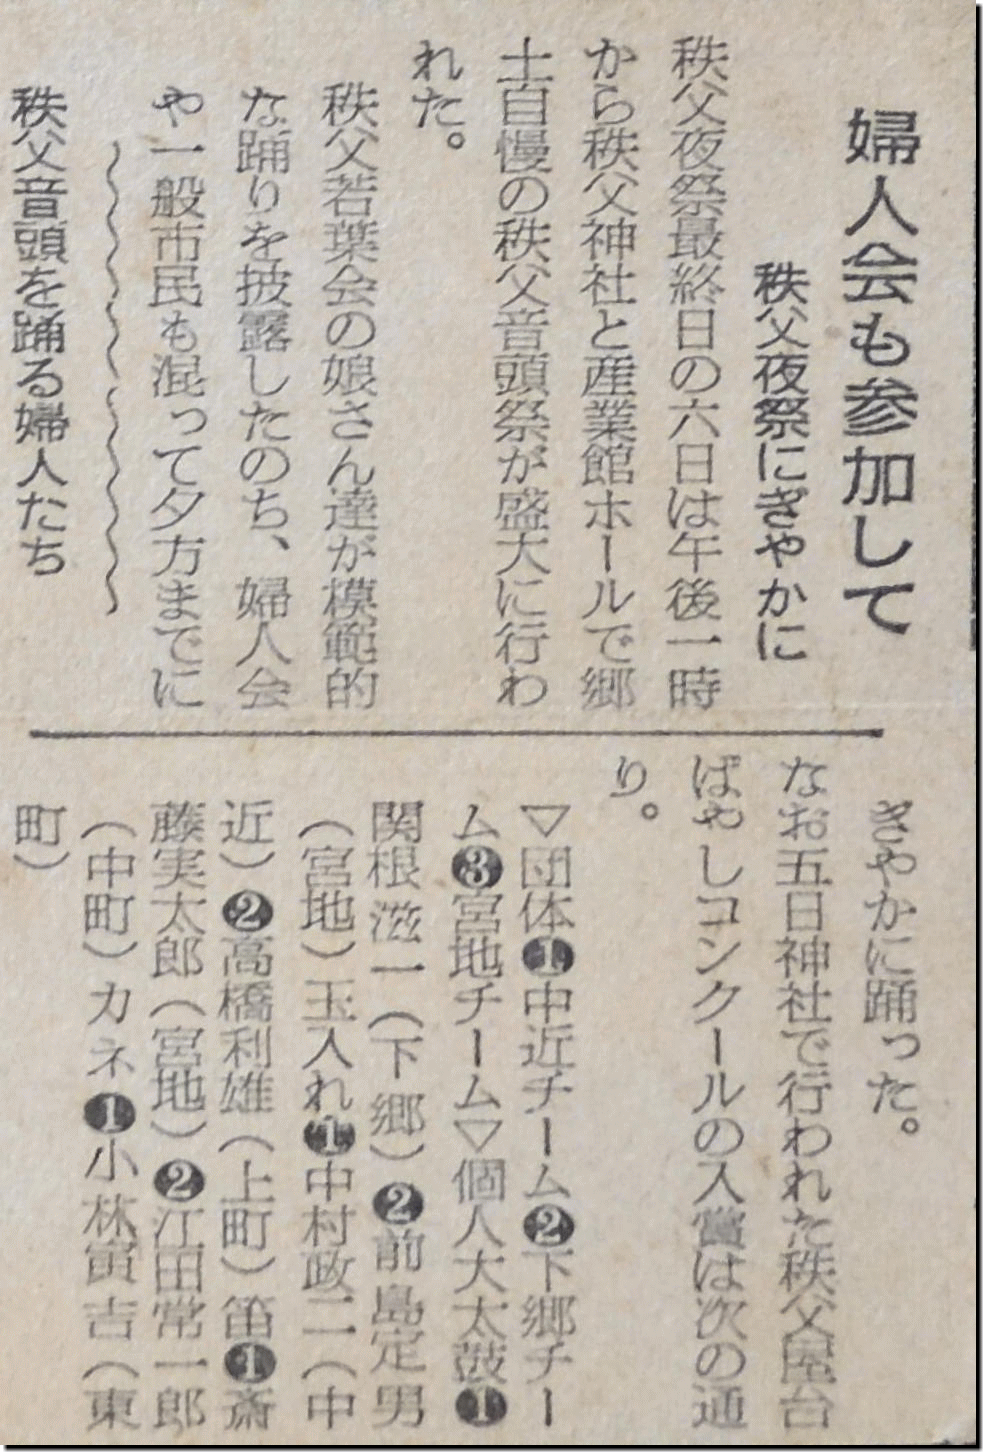 婦人会も参加して
秩父夜祭にぎやかに
秩父夜祭最終日の六日は午後一時
から秩父神社と産業館ホールで郷
土自慢の秩父音頭祭が盛大に行わ
れた。
秩父若葉会の娘さん達が模範的
な踊りを披露したのち、婦人会
や一般市民も混って夕方までに
ぎやかに踊った。
なお五日神社で行われた秩父屋台
ばやしコンクールの入賞は次の通
り。
▽団体❶中近チーム❷下郷チー
ム❸宮地チーム▽個人大太鼓❶
関根滋一(下郷)❷前島定男
(宮地)玉入れ❶中村政二(中
近)❷高橋利雄(上町)笛❶斎
藤実太郎(宮地)❷江田常一郎
(中町)カネ❶小林寅吉(東
町)
秩父音頭を踊る婦人たち